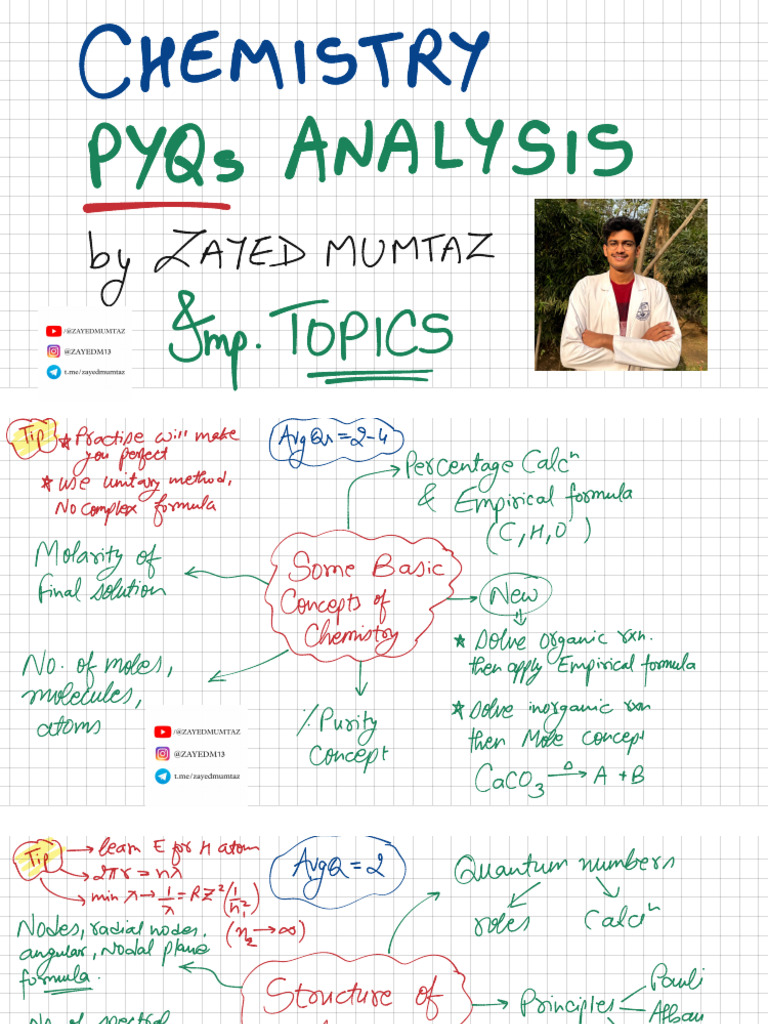 CHEMISTRY
PYQs ANALYSIS
by ZAYED MUMTAZ
& Imp. TOPICS
/@ZAYEDMUMTAZ
@ZAYEDM13
t.me/zayedmumtaz
Tip
* Practise will make
you perfect
* use unitary method,
No complex formula
Avg Qs = 2-4
Percentage Calcⁿ
& Empirical formula
(C, H, O)
Molarity of
final solution
Some Basic
Concepts of
Chemistry
New
* Solve organic rxn.
then apply Empirical formula
No. of moles,
molecules,
atoms
% Purity
Concept
* Solve inorganic rxn
then Mole concept
CaCO₃ —Δ→ A + B
/@ZAYEDMUMTAZ
@ZAYEDM13
t.me/zayedmumtaz
Tip
→ learn E for H atom
→ 2πr = nλ
→ min λ → 1/λ = RZ²(1/n₁²)
(n₂ → ∞)
Avg Q = 2
Quantum numbers
rules
Calcⁿ
Nodes, radial nodes,
angular, Nodal plane
formula.
Structure of
Principles
Pauli
No. of spectral